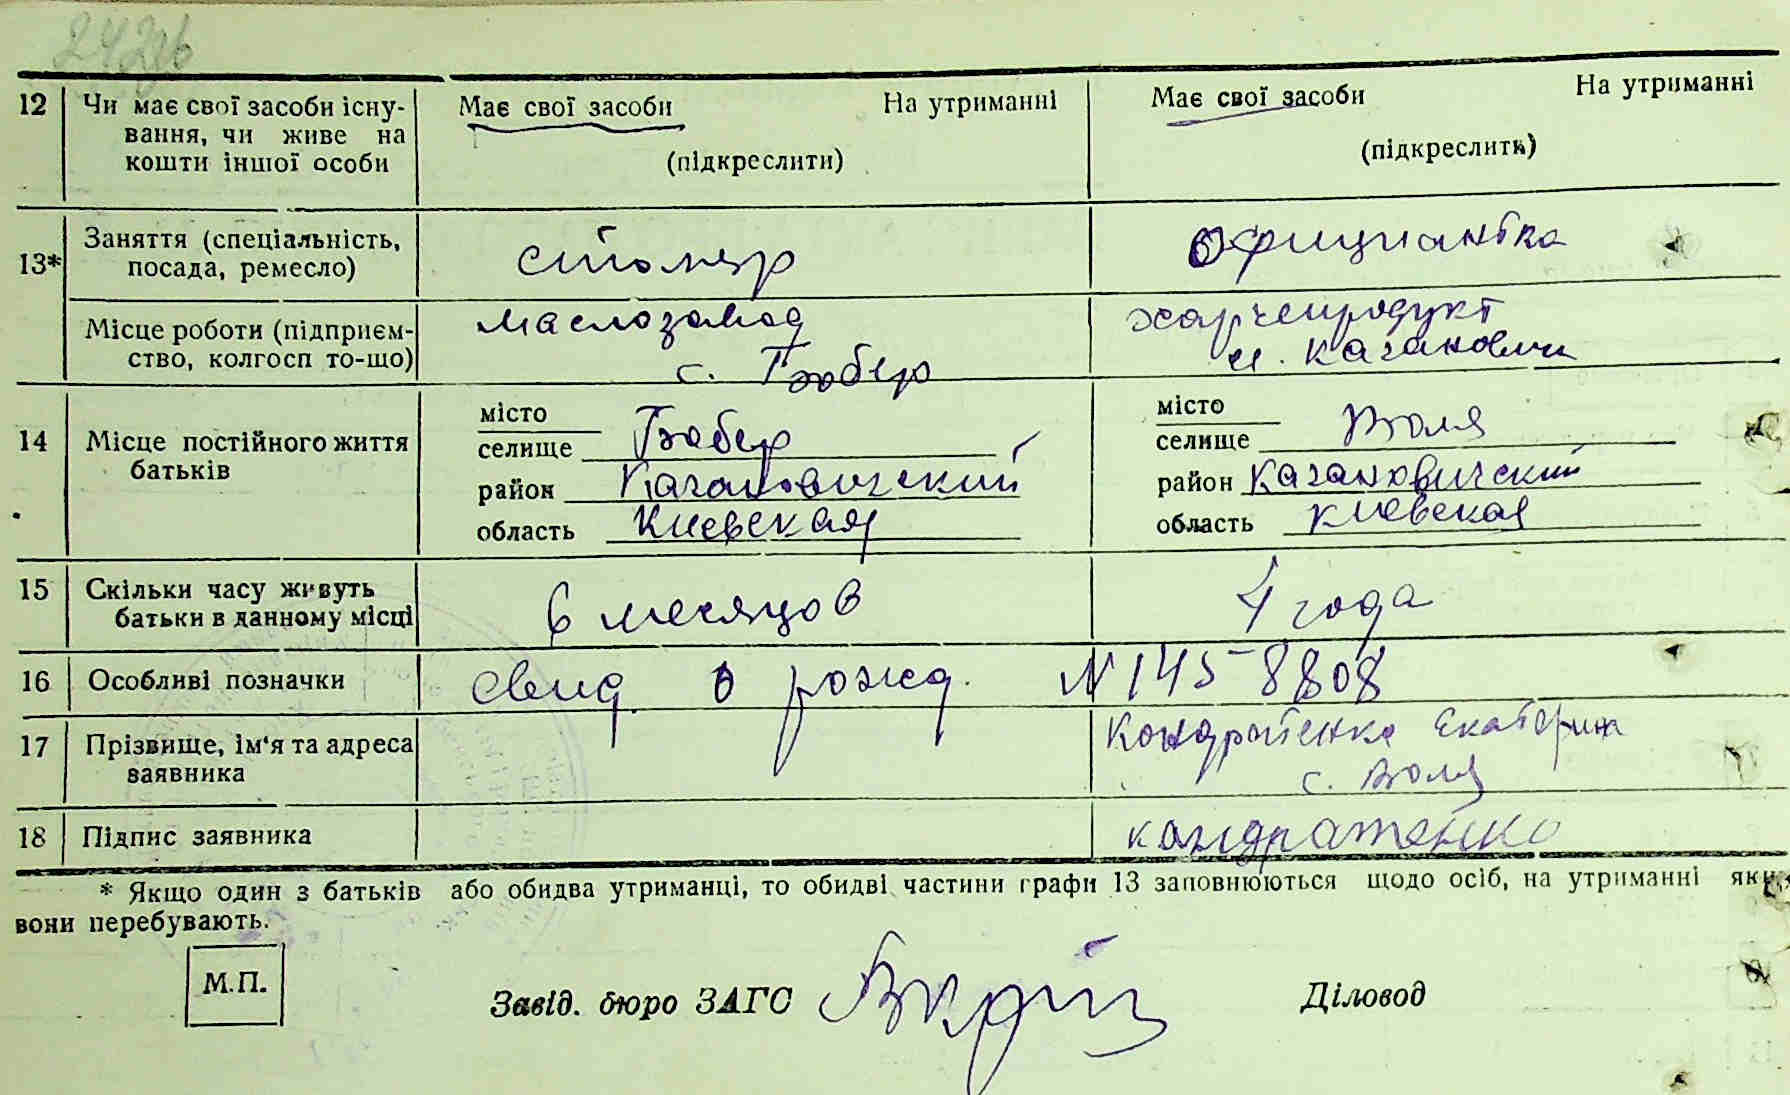 242
12 Чи має свої засоби існу- Має свої засоби На утриманні Має свої засоби На утриманні
вання, чи живе на
кошти іншої особи (підкреслити) (підкреслить)
13* Заняття (спеціальність, столяр Официантка
посада, ремесло)
Місце роботи (підприєм- маслозавод харчепродукт
ство, колгосп то-що) с. Бобер и. Кагановичи
14 Місце постійного життя місто місто
батьків селище Бобер селище Воля
район Кагановичский район Кагановичский
область Киевская область Киевская
15 Скільки часу живуть 6 месяцов 4 года
батьки в данному місці
16 Особливі позначки Свид. о рожд. N 145-8808
17 Прізвище, ім'я та адреса Кондратенко Екатерина
заявника с. Воля
18 Підпис заявника кандратенко
* Якщо один з батьків або обидва утриманці, то обидві частини графи 13 заповнюються щодо осіб, на утриманні яких
вони перебувають.
М.П. Завід. бюро ЗАГС Діловод